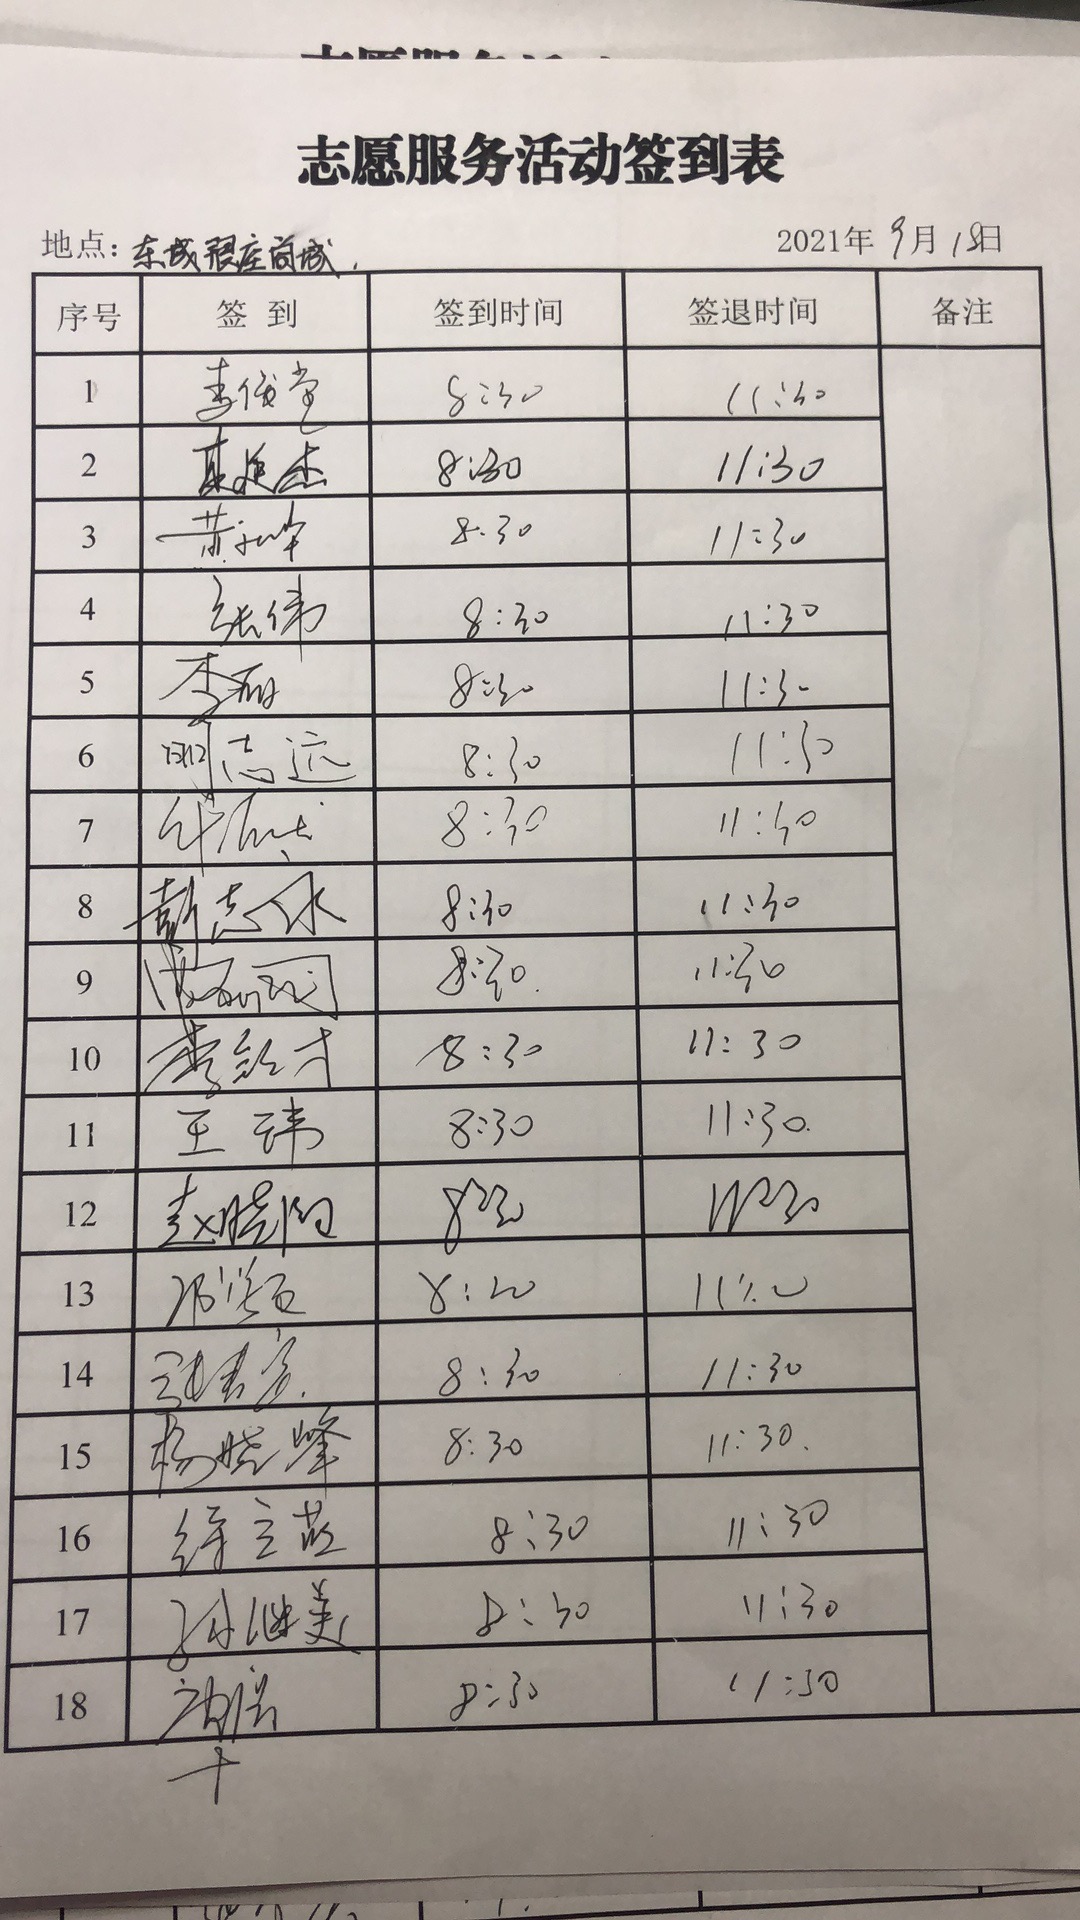 志愿服务活动签到表
地点：东城银座商城 2021年9月18日
序号 签到 签到时间 签退时间 备注
1 李俊堂 8:30 11:30
2 8:30 11:30
3 8:30 11:30
4 张伟 8:30 11:30
5 李丽 8:30 11:30
6 明志远 8:30 11:30
7 8:30 11:30
8 彭志冰 8:30 11:30
9 8:30 11:30
10 8:30 11:30
11 王玮 8:30 11:30
12 赵晓阳 8:30 11:30
13 8:30 11:30
14 8:30 11:30
15 杨晓峰 8:30 11:30
16 徐立燕 8:30 11:30
17 孙继美 8:30 11:30
18 8:30 11:30